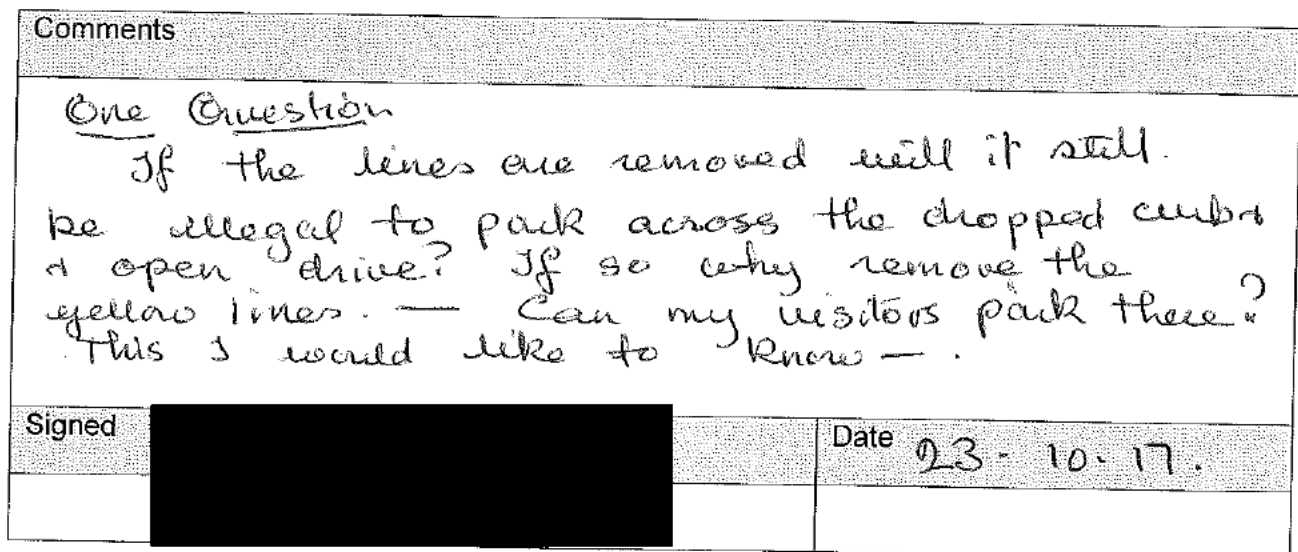 Comments
One Question
If the lines are removed will it still.
be illegal to park across the dropped curbs
& open drive? If so why remove the
yellow lines. — Can my visitors park there?
This I would like to know — .
Signed
Date 23 - 10 - 17.